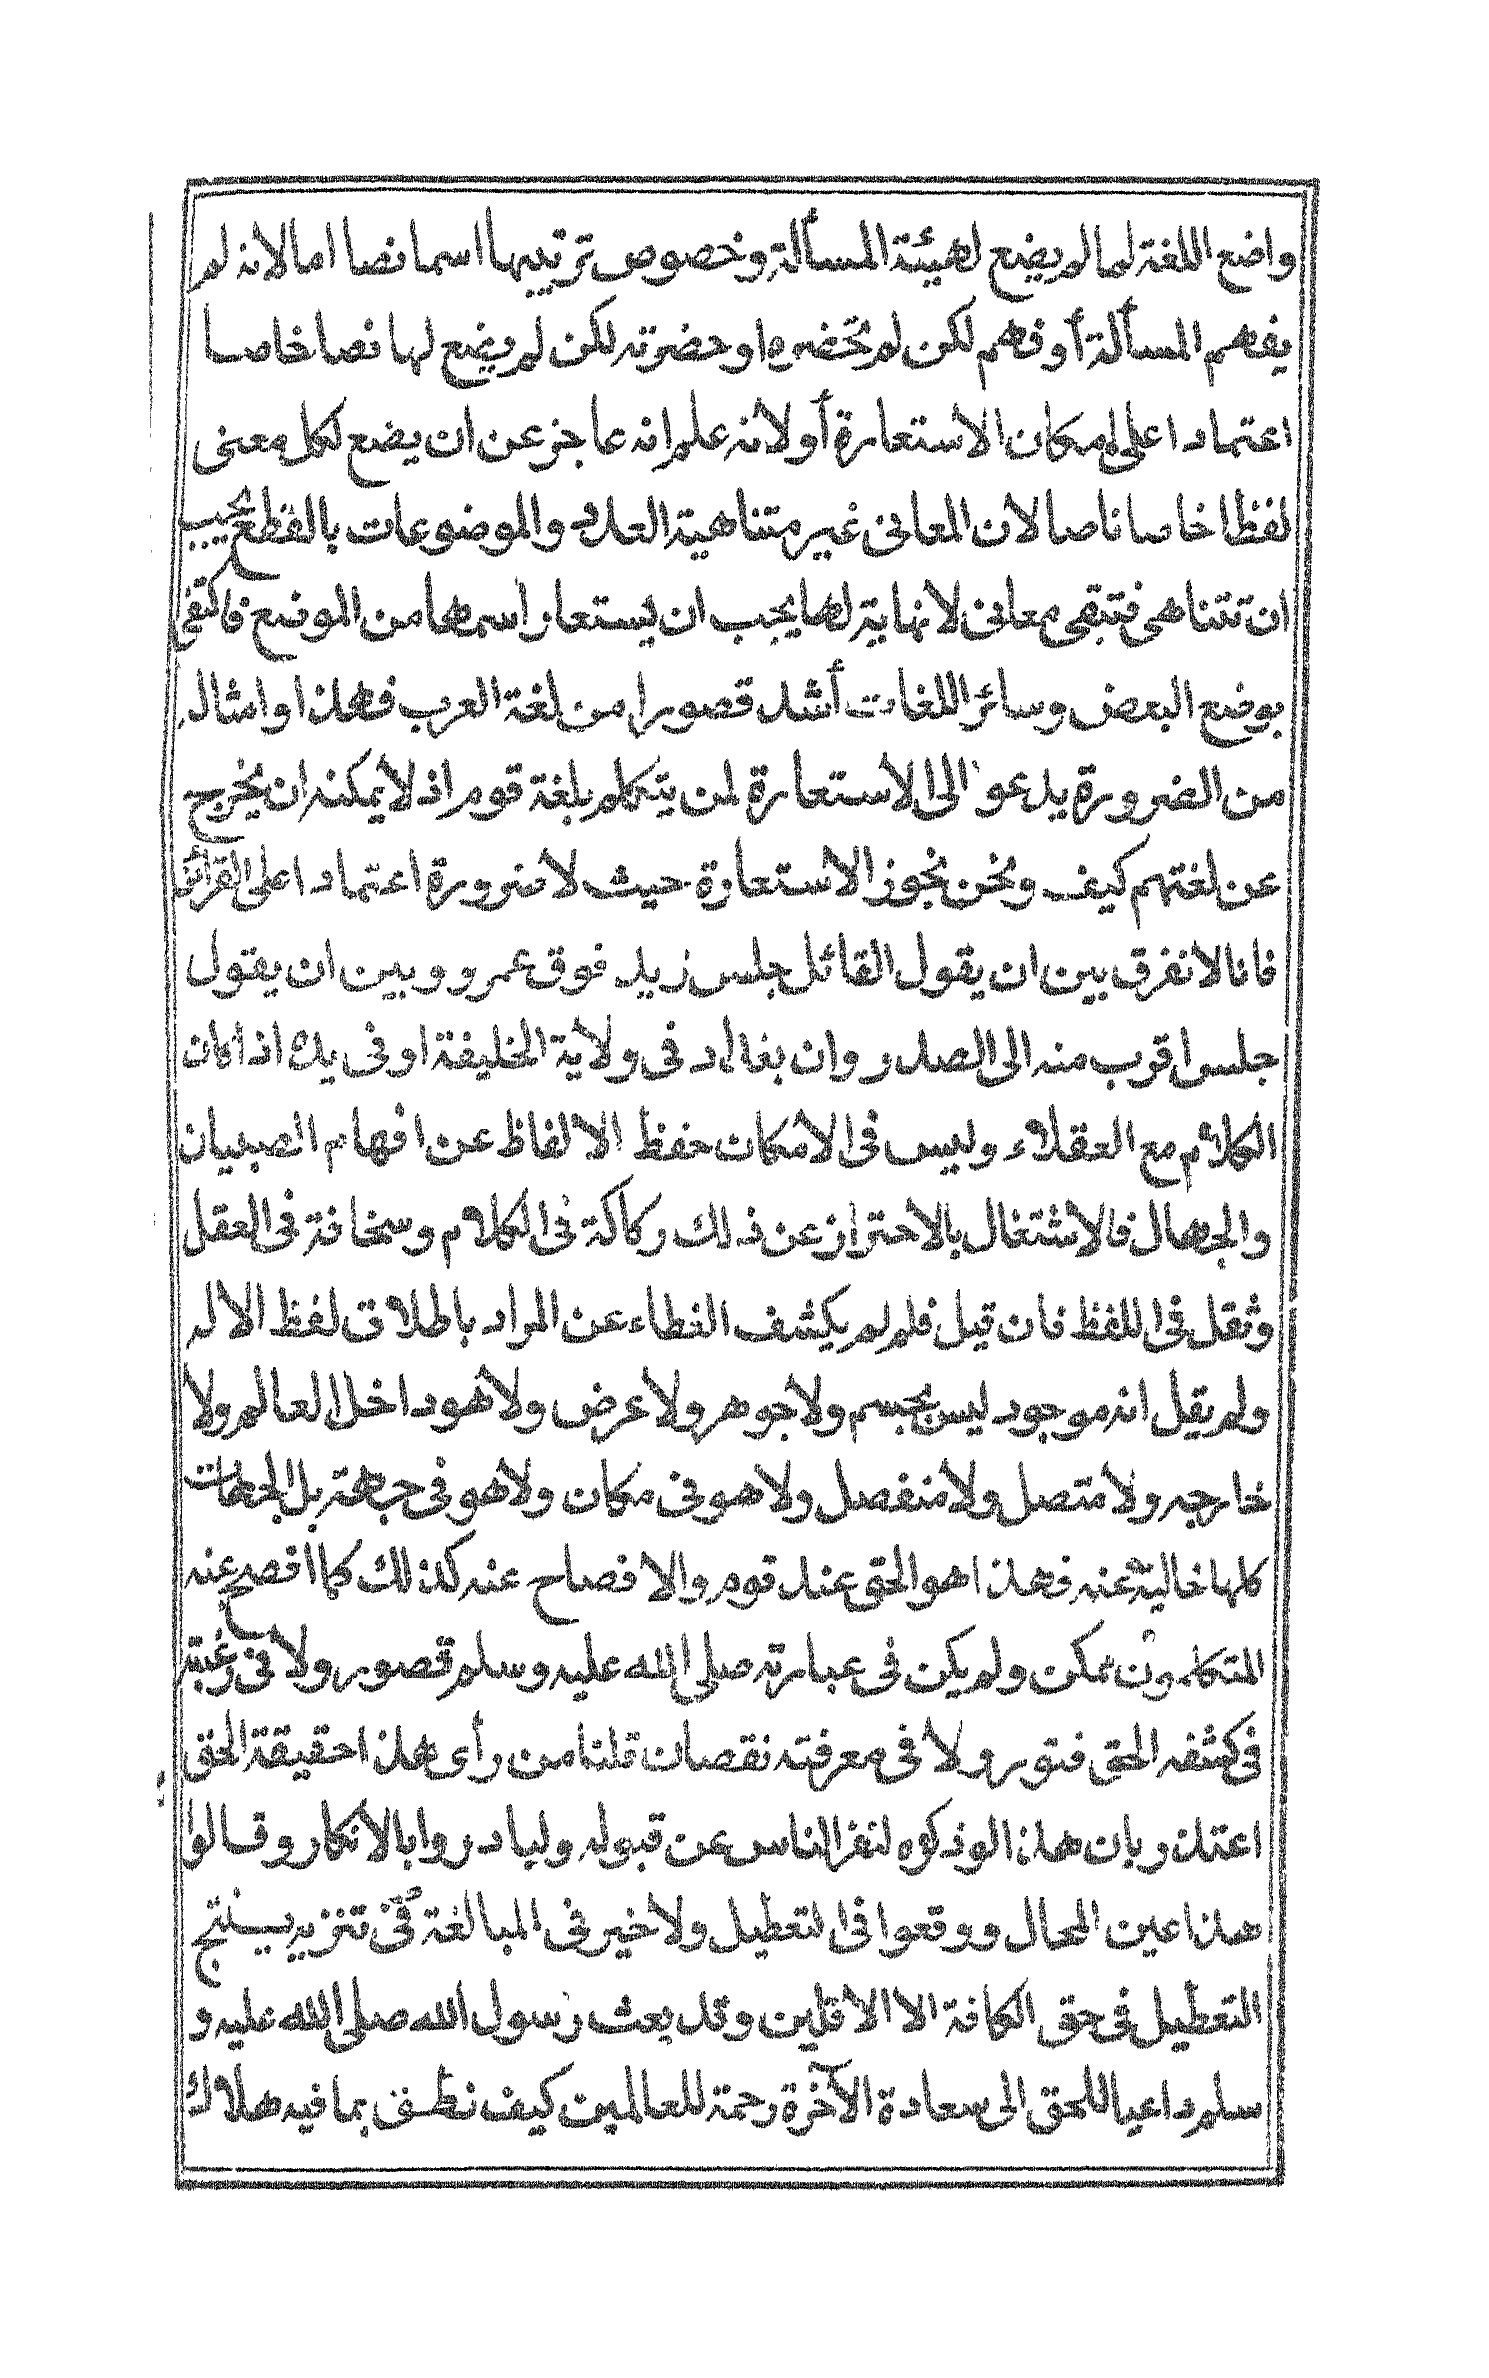 واضع اللغة لما لم يضع لهيئة المسألة وخصوص ترتيبها اسما نصا اما لانه لم
يفهم المسألة أو فهم لكن لم تحضره او حضرته لكن لم يضع لها نصا خاصا
اعتمادا على امكان الاستعارة أولانه علم انه عاجز عن ان يضع لكل معنى
لفظا خاصا ناصا لان المعانى غير متناهية العدد والموضوعات بالقطع يجب
ان تتناهى فتبقى معانى لانهاية لها يجب ان يستعار اسمها من الموضع فاكتفى
بوضع البعض وسائر اللغات أشد قصورا من لغة العرب فهذا وامثاله
من الضرورة يدعو الى الاستعارة لمن يتكلم بلغة قوم اذ لايمكنه ان يخرج
عن لغتهم كيف ونحن نجوز الاستعارة حيث لاضرورة اعتمادا على القرائن
فانا لانفرق بين ان يقول القائل جلس زيد فوق عمرو وبين ان يقول
جلس اقرب منه الى الصدر وان بغداد فى ولاية الخليفة او فى يده اذا كان
الكلام مع العقلاء وليس فى الامكان حفظ الالفاظ عن افهام الصبيان
والجهال فالاشتغال بالاحتراز عن ذلك ركاكة فى الكلام وسخافة فى العقل
وثقل فى اللفظ فان قيل فلم لم يكشف الغطاء عن المراد باطلاق لفظ الاله
ولم يقل انه موجود ليس بجسم ولاجوهر ولاعرض ولاهو داخل العالم ولا
خارجه ولا متصل ولا منفصل ولاهو فى مكان ولاهو فى جهة بل الجهات
كلها خالية عنه فهذا هو الحق عند قوم والافصاح عنه كذلك كما افصح عنه
المتكلمون ممكن ولم يكن فى عبارته صلى الله عليه وسلم قصور ولا فى رغبته
فى كشفه الحق فتور ولا فى معرفته نقصان قلنا من رأى هذا حقيقة الحق
اعتذر بان هذا لو ذكره لنفر الناس عن قبوله ولبادروا بالانكار وقالوا
هذا عين المحال ووقعوا فى التعطيل ولا خير فى المبالغة فى تنزيه ينتج
التعطيل فى حق الكافة الا الاقلين وقد بعث رسول الله صلى الله عليه و
سلم داعيا للحق الى سعادة الآخرة رحمة للعالمين كيف نطق بما فيه هلاك